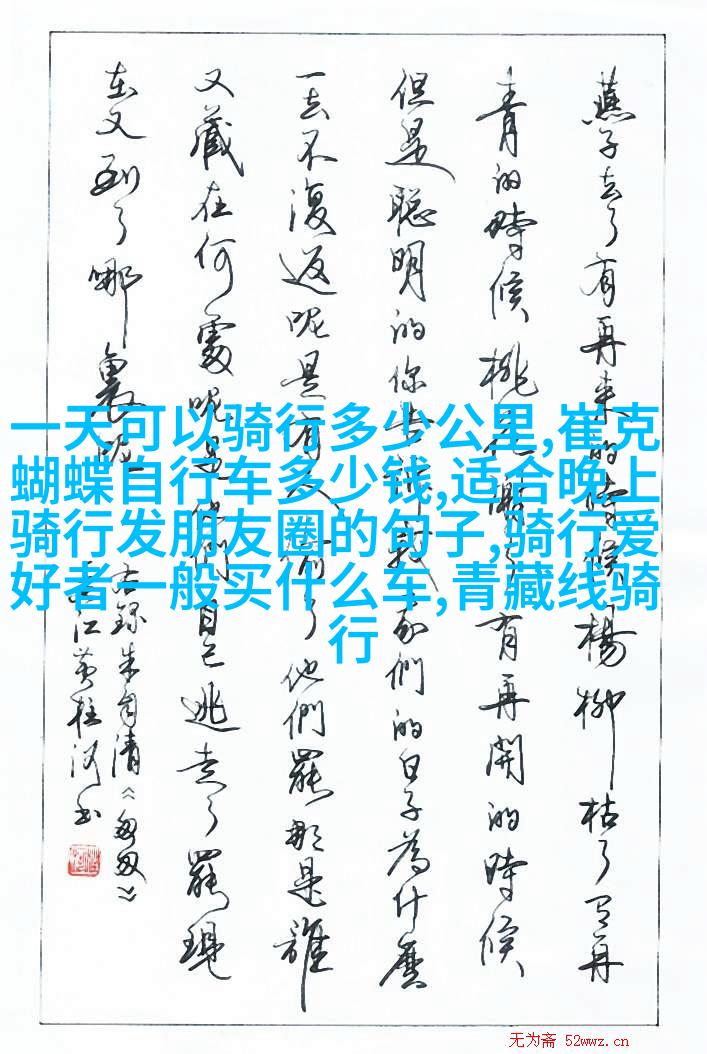 燕子去了有再来的時候楊柳枯了有再
青的時候桃花謝了有再開的時候
但是聪明的你告訴我我們的日子為什麼
一去不復返呢是有人偷了他們罷那是誰
又藏在何處呢是他們自己逃走了罷現
在又到了哪裏呢
右錄朱自清《匆匆》
江黄桂河书
一天可以骑行多少公里,崔克
蝴蝶自行车多少钱,适合晚上
骑行发朋友圈的句子,骑行爱
好者一般买什么车,青藏线骑
行
无为斋 52wwz.cn